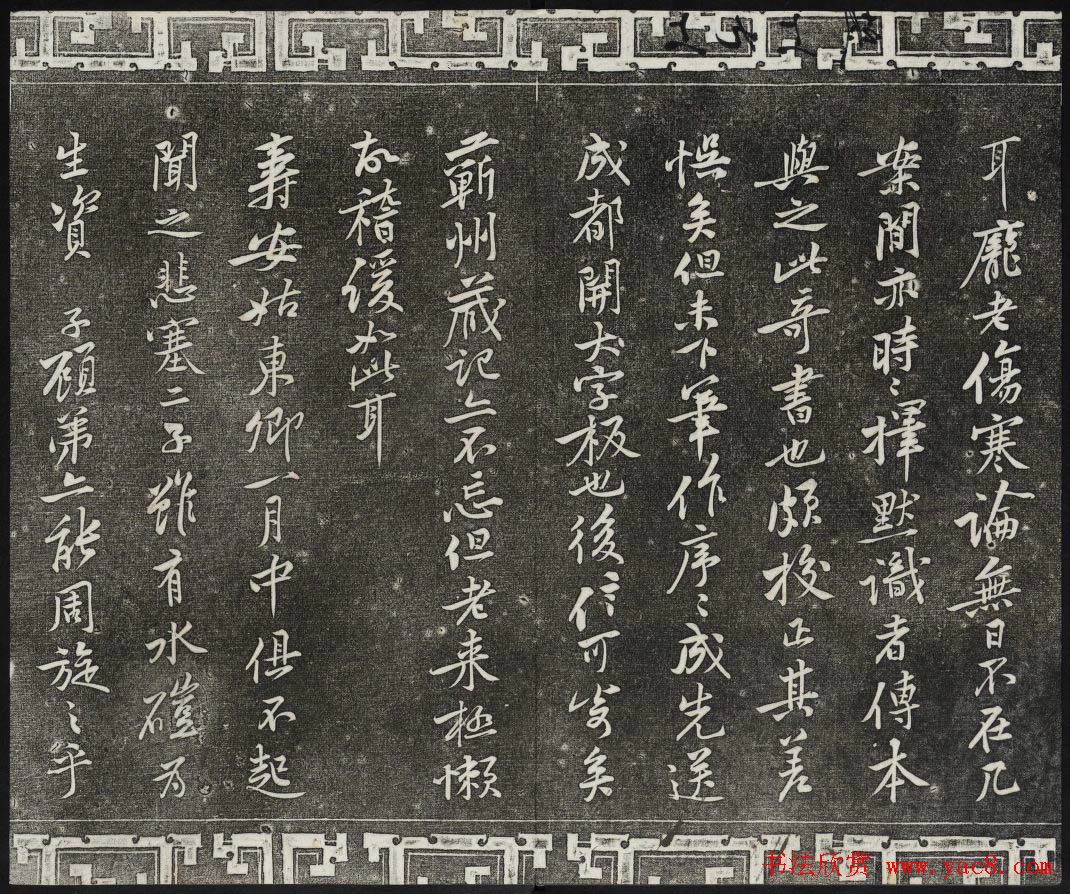 耳龐老傷寒論無日不在几
案間亦時〻擇默識者傳本
與之此奇書也頗校正其差
悞矣但未下筆作序〻成先送
成都開大字板也後信可寄矣
蘄州藏記亦不忘但老来極懶
故稽緩如此耳
壽安姑東卿一月中俱不起
聞之悲塞二子雖有水磑为
生資 子顧弟亦能周旋之乎
书法欣赏 www.yac8.com